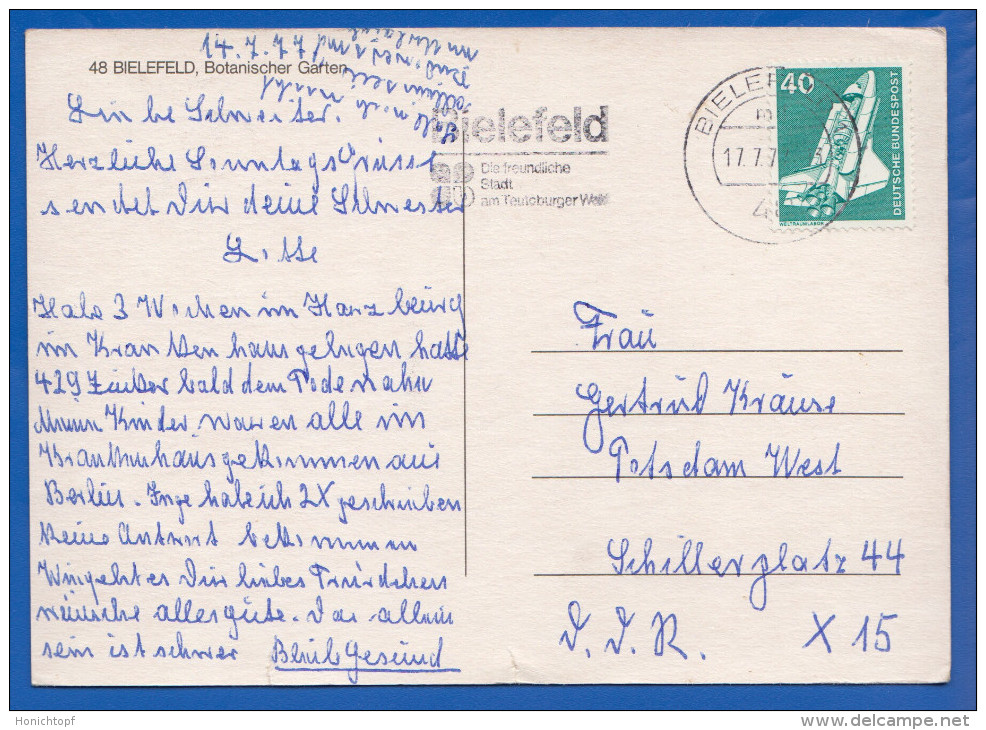 14.7.77
48 BIELEFELD, Botanischer Garten
Liebe Schwester.
Herzliche Sonntags Grüsse
sendet Dir deine Schwester
Lotte
Habe 3 Wochen im Harz
im Krankenhaus gelegen hatte
429 Zucker bald dem Tode nahn
Meine Kinder waren alle im
Krankenhaus gekommen aus
Berlin. Inge habe ich 2X geschrieben
keine Antwort bekommen
Wie geht es Dir liebes Trudchen
wünsche alles gute. Das allein
sein ist schwer Bleib Gesund
Bielefeld
Die freundliche
Stadt
am Teutoburger Wald
BIELEFELD
17.7.7
48
40
DEUTSCHE BUNDESPOST
WELTRAUMLABOR
Frau
Gertrud Krause
Potsdam West
Schillerplatz 44
D.D.R. X 15
Honichtopf
www.delcampe.net